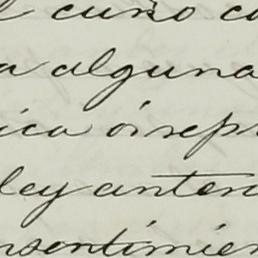 l cuño co
a alguna
ica ó irepr
ley anteri
nsentimien